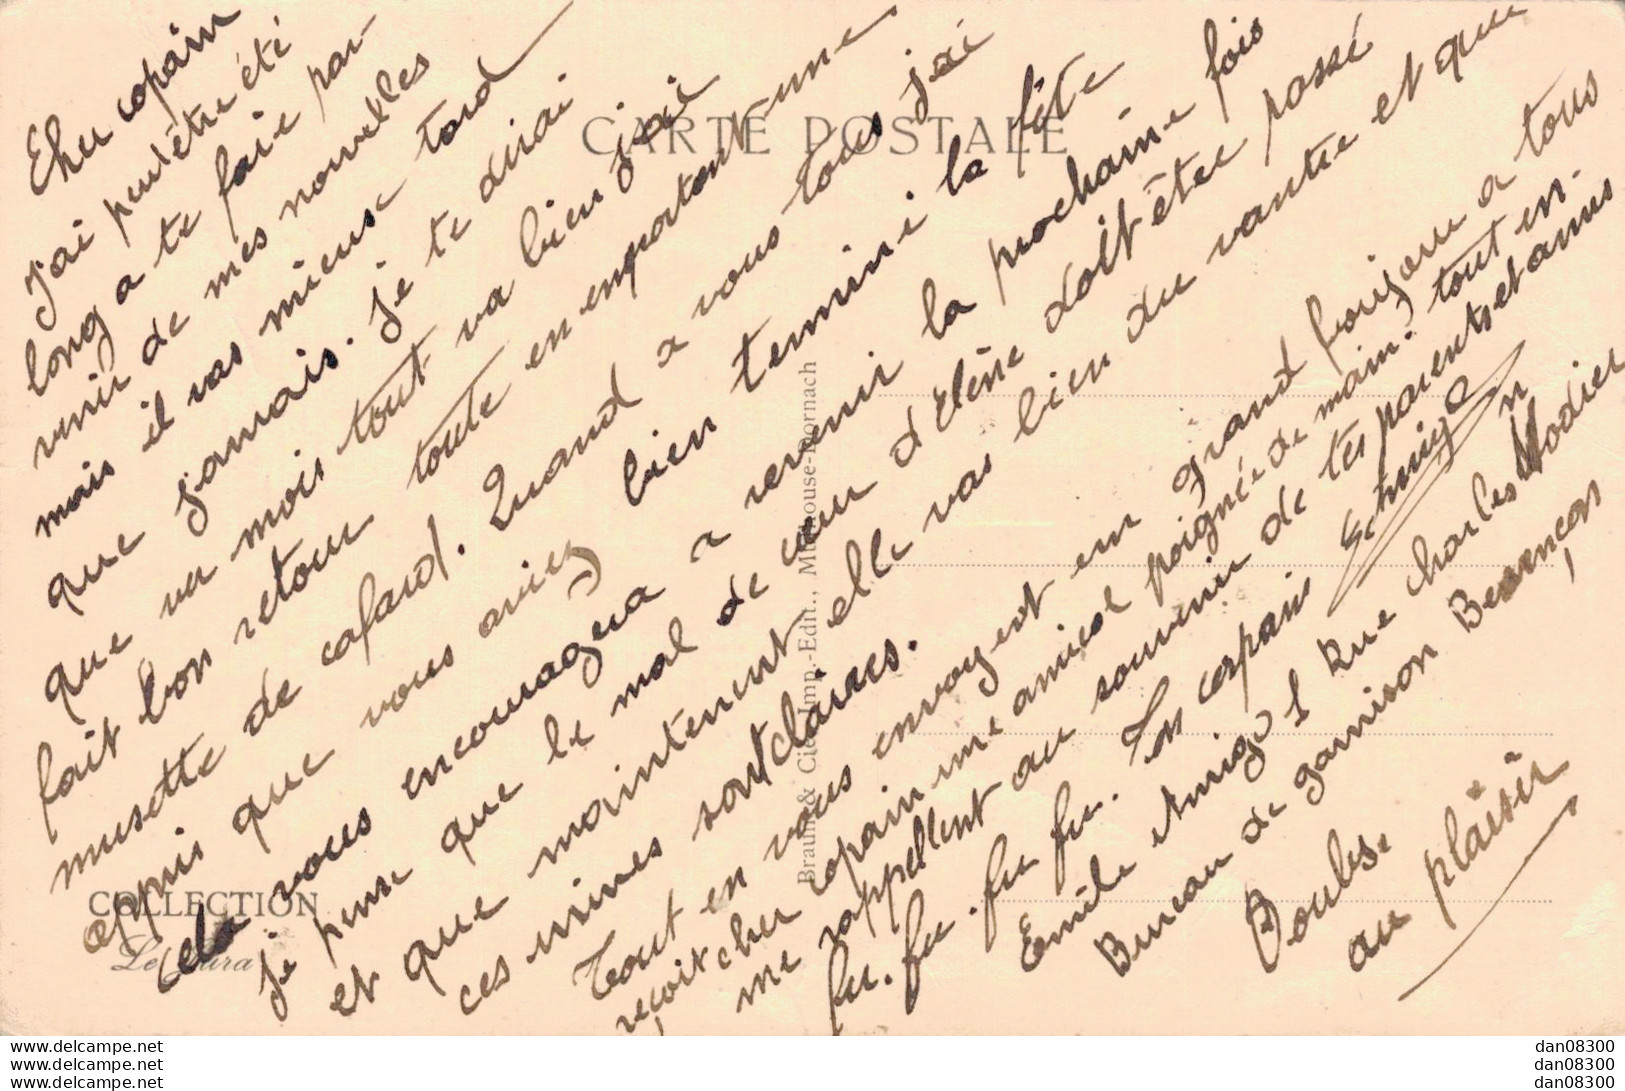 Cher copain
j'ai peut être été
long a te faire par-
venir de mes nouvelles
mais il vas mieux tard
que jamais. je te dirai
que vu mois tout va bien j'ai
fait bon retour toute en emportant une
musette de cafard. Quand a vous tous j'ai
appris que vous aviez bien terminé la fête
cela vous encouragera a revenir la prochaine fois
je pense que le mal de cœur d'Elène doit être passé
et que maintenant elle vas bien du ventre et que
ces urines sont claires.
Tout en vous envoyent un grand bonjour a tous
reçoit cher copain une amical poignée de main. tout en
me rappellent au souvenir de tes parents et amis
fu. fu. fu. fu. fu. fu. Ton copain
Emile Amigo 1 Rue Charles Nodier
Bureau de garnison Besançon
Doubs.
au plaisir
CARTE POSTALE
Braun & Cie, Imp.-Edit., Mulhouse-Dornach
COLLECTION
Le Jura
www.delcampe.net
www.delcampe.net
www.delcampe.net
dan08300
dan08300
dan08300